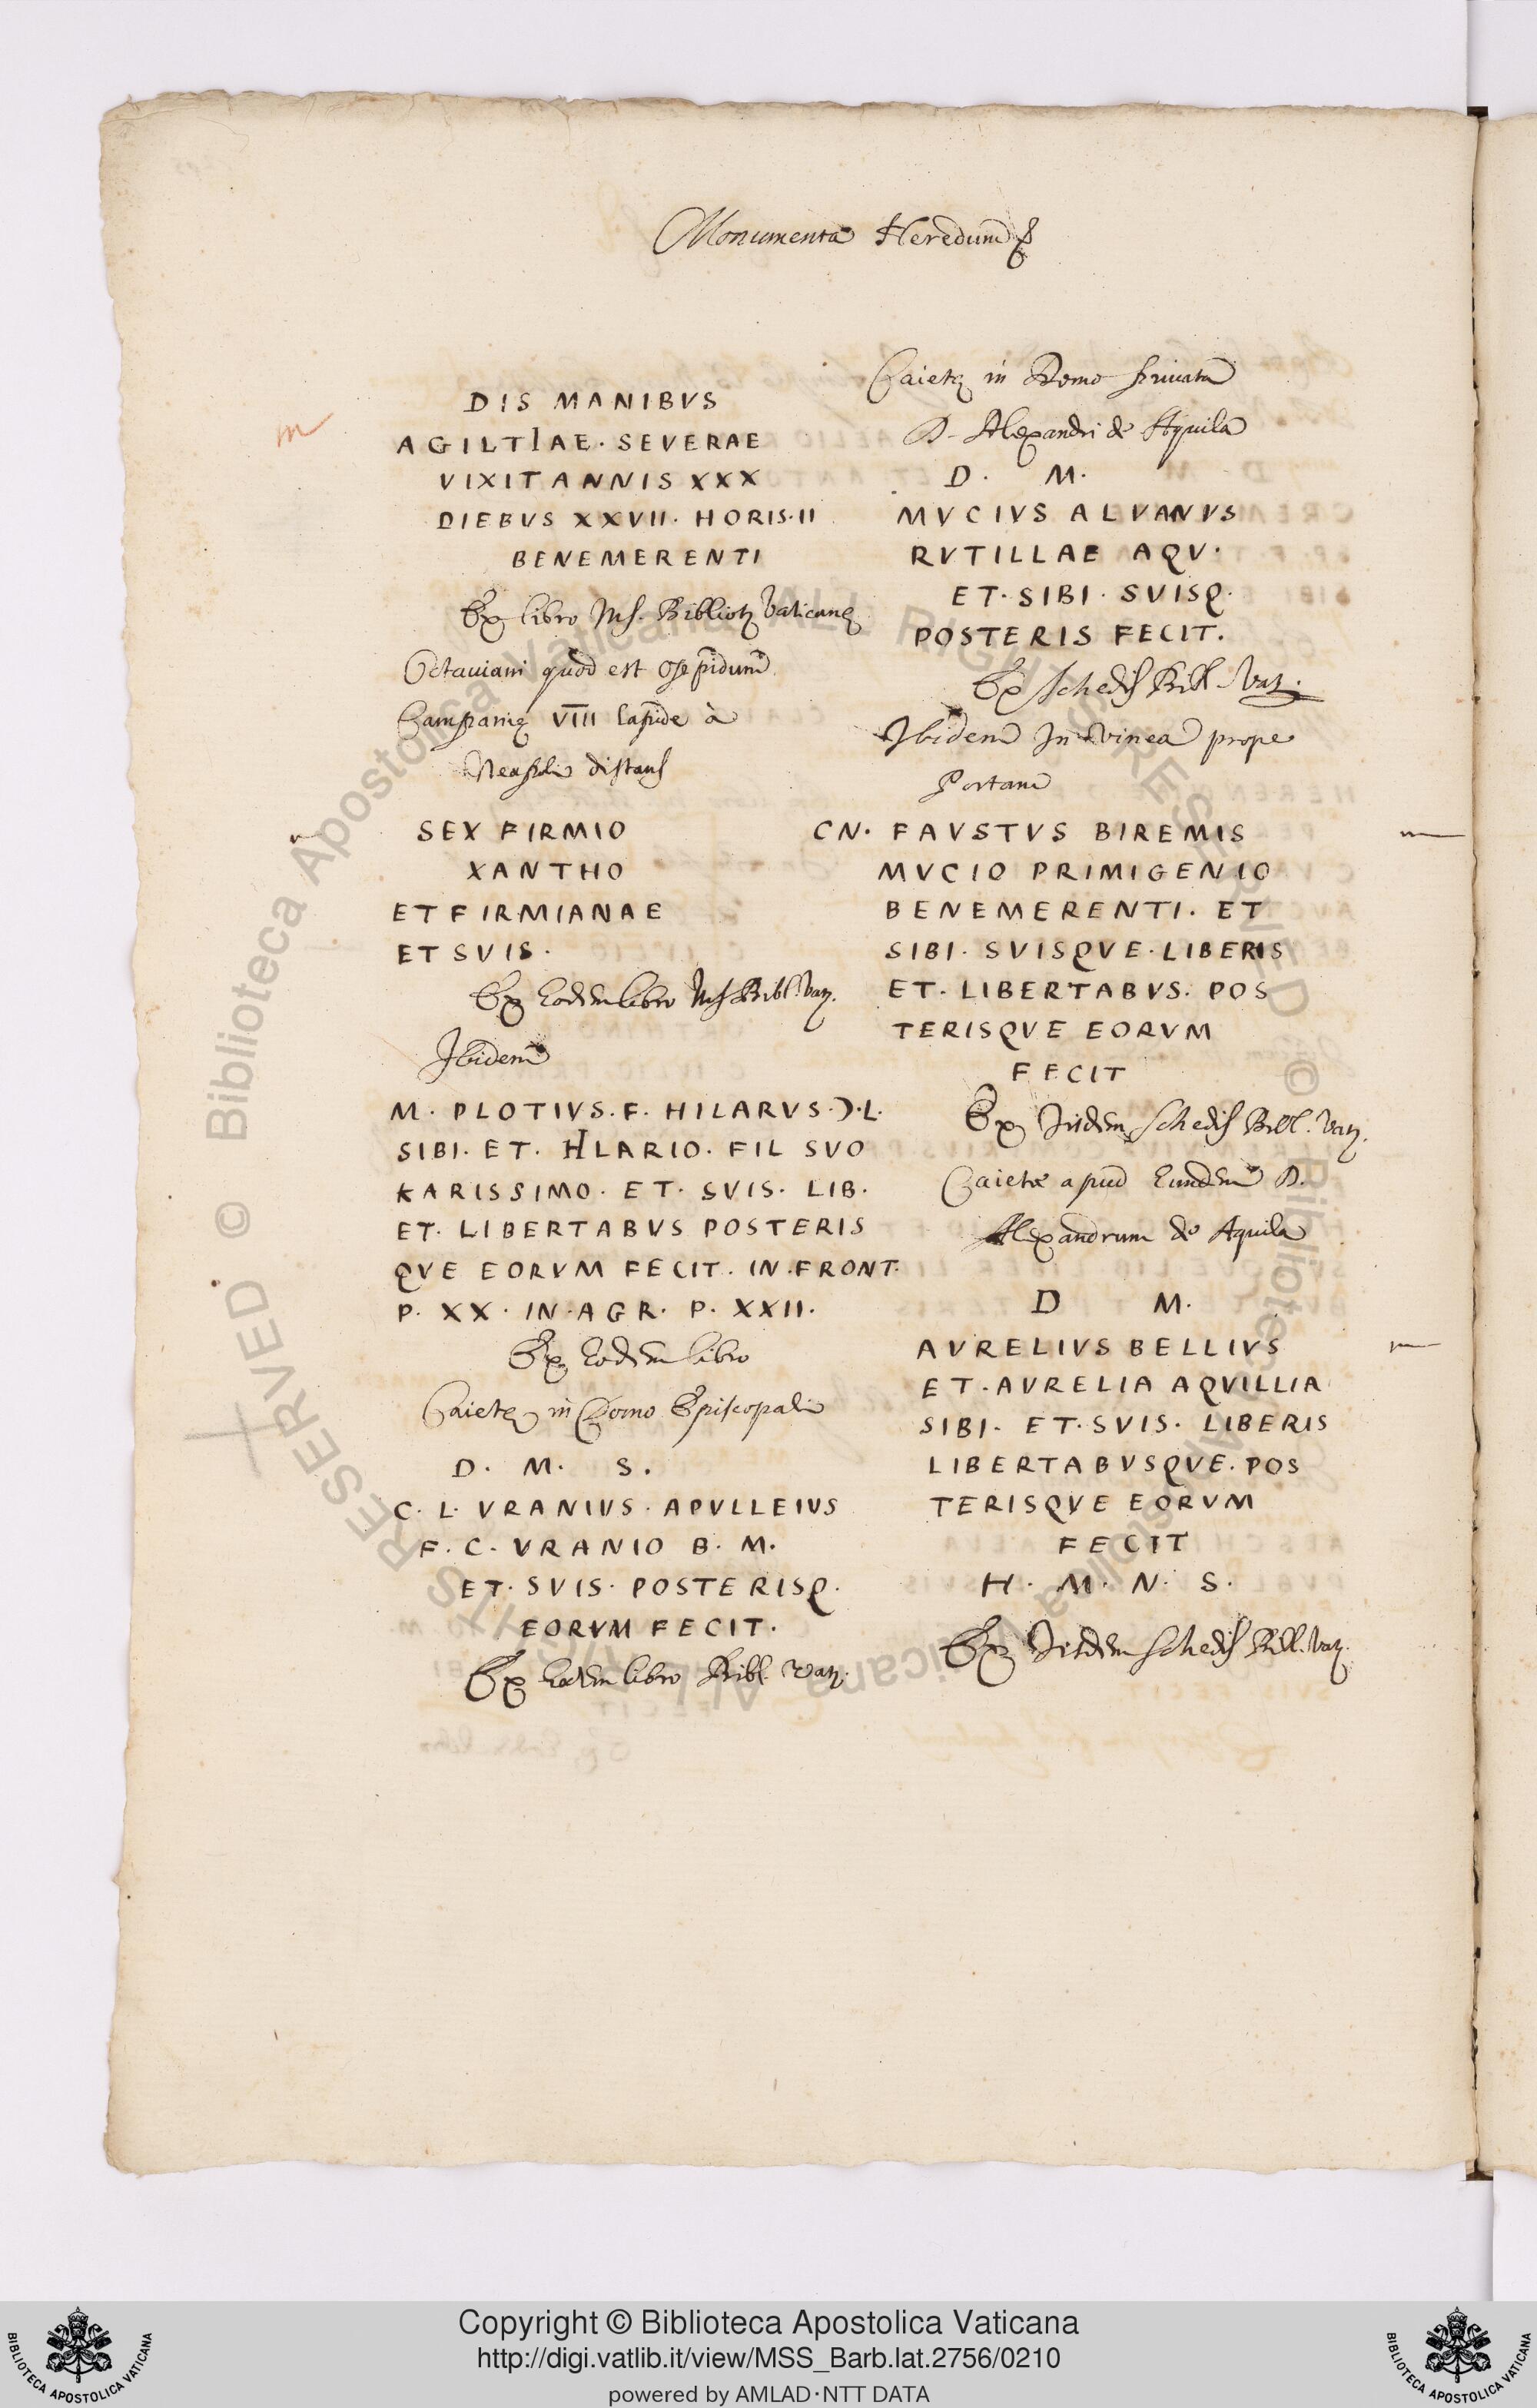 Monumenta Heredum
DIS MANIBVS
AGILTIAE · SEVERAE
VIXIT ANNIS XXX
DIEBVS XXVII · HORIS · II
BENEMERENTI
Ex libro Ms. Biblioth Vaticanę
Octauiani quod est oppidum
Campanię VIII lapide à
Neapoli distans
SEX FIRMIO
XANTHO
ET FIRMIANAE
ET SVIS ·
Ex Eodem libro Ms Bibl. Vat.
Ibidem
M · PLOTIVS · F · HILARVS · Ɔ · L ·
SIBI · ET · HLARIO · FIL SVO
KARISSIMO · ET · SVIS · LIB ·
ET · LIBERTABVS POSTERIS
QVE EORVM FECIT · IN · FRONT ·
P · XX · IN · AGR · P · XXII ·
Ex Eodem libro
Caietę in Domo Episcopali
D · M · S ·
C · L · VRANIVS · APVLLEIVS
F · C · VRANIO B · M ·
ET · SVIS · POSTERISQ ·
EORVM FECIT ·
Ex Eodem libro Bibl. Vat.
Caietę in Domo priuata
D. Alexandri de Aquila
D · M ·
MVCIVS ALVANVS
RVTILLAE AQV ·
ET · SIBI · SVISQ ·
POSTERIS FECIT ·
Ex schedis Bibl. Vat.
Ibidem In vinea prope
Portam
CN · FAVSTVS BIREMIS
MVCIO PRIMIGENIO
BENEMERENTI · ET
SIBI · SVISQVE · LIBERIS
ET · LIBERTABVS · POS
TERISQVE EORVM
FECIT
Ex Iisdem schedis Bibl. Vat.
Caietae apud Eundem D.
Alexandrum de Aquila
D M ·
AVRELIVS BELLIVS
ET · AVRELIA AQVILLIA
SIBI · ET · SVIS · LIBERIS
LIBERTABVSQVE · POS
TERISQVE EORVM
FECIT
H · M · N · S ·
Ex Iisdem schedis Bibl. Vat.
© Biblioteca Apostolica Vaticana ALL RIGHTS RESERVED
Copyright © Biblioteca Apostolica Vaticana
http://digi.vatlib.it/view/MSS_Barb.lat.2756/0210
powered by AMLAD·NTT DATA
BIBLIOTECA APOSTOLICA VATICANA
BIBLIOTECA APOSTOLICA VATICANA